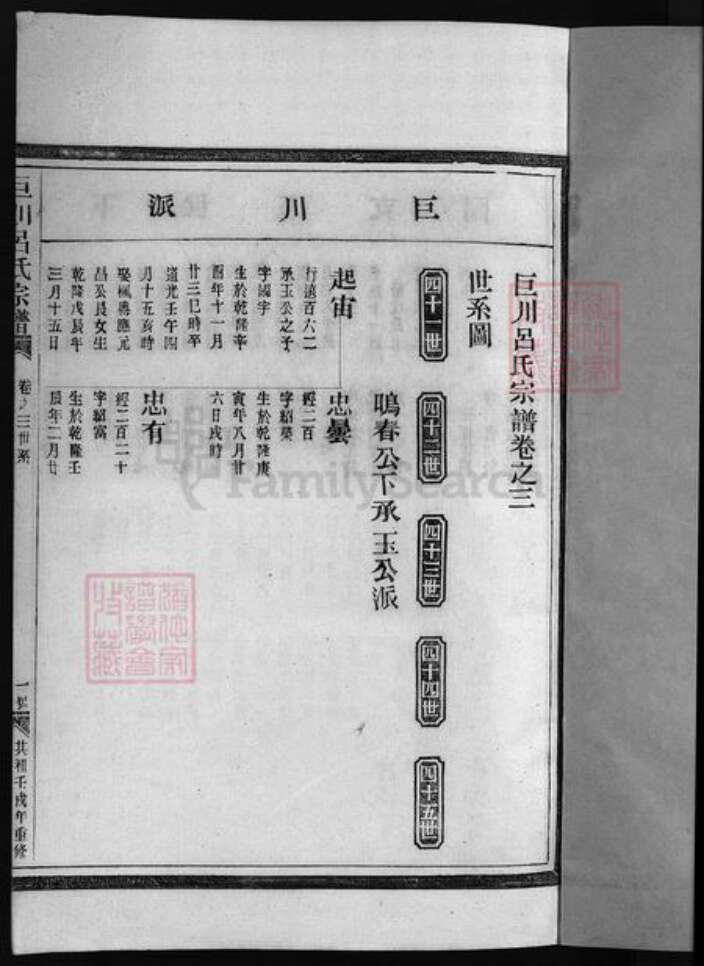 巨川派
巨川呂氏宗譜卷之三
世系圖
四十一世
四十二世
四十三世
四十四世
四十五世
鳴春公下承玉公派
起宙
行遠百六二
承玉公之子
字國宇
生於乾隆辛
酉年十一月
廿三巳時卒
道光壬午四
月十五亥時
娶楓勝應元
昌公長女生
乾隆戊辰年
三月十五日
忠曇
經二百
字紹榮
生於乾隆庚
寅年八月廿
六日戌時
忠有
經二百二十
字紹富
生於乾隆壬
辰年二月廿
巨川呂氏宗譜
卷之三世系
一
共和壬戌年重修
FamilySearch